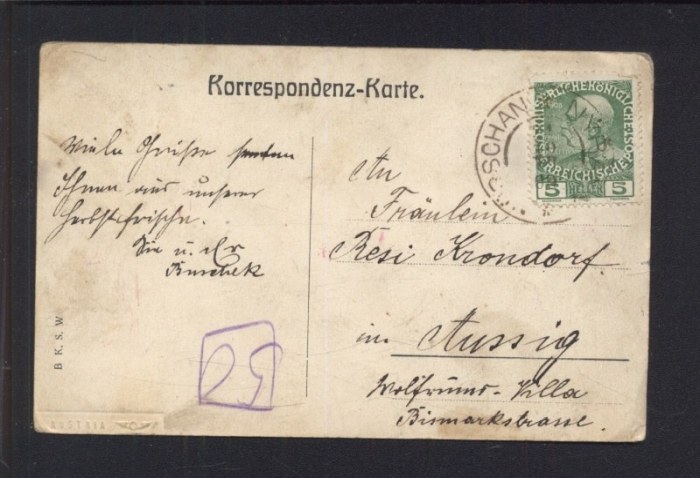 Korrespondenz-Karte.
Viele Grüße senden
Ihnen aus unserer
Herbstfrische.
Sie u. Er
Buschek
An
Fräulein
Resi Krondorf.
in Aussig
Wolfrums-Villa
Bismarkstrasse.
B K. S. W
KAISERLICHE KÖNIGLICHE
ÖSTERREICHISCHE POST
5 HELLER 5
SCHAN
AUSTRIA